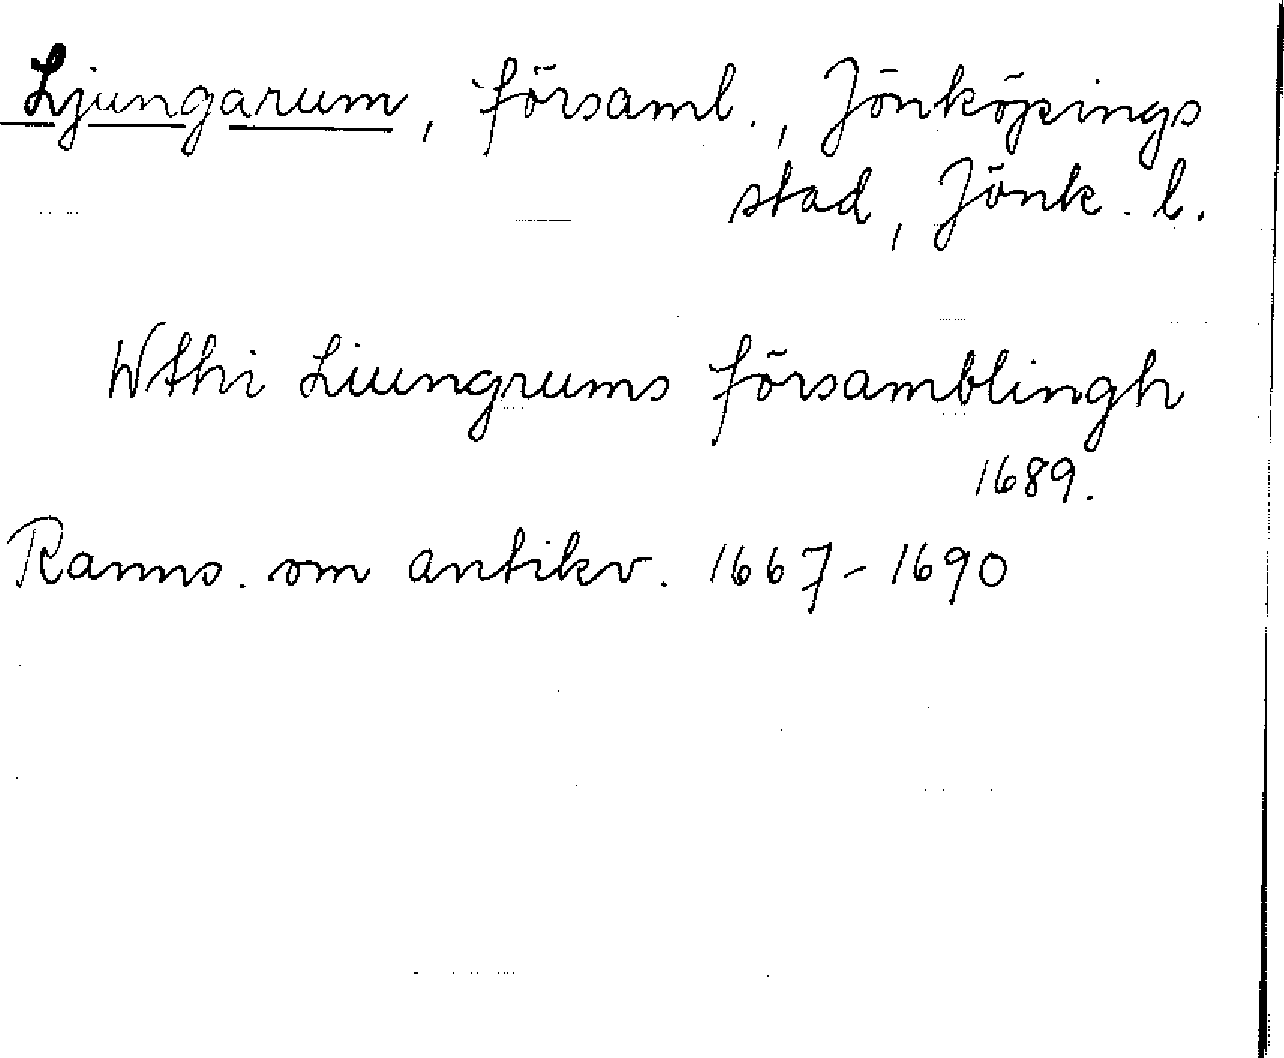 Ljungarum, församl., Jönköpings
stad, Jönk. l.
Wthi Liungrums församblingh
1689.
Ranns. om antikv. 1667-1690